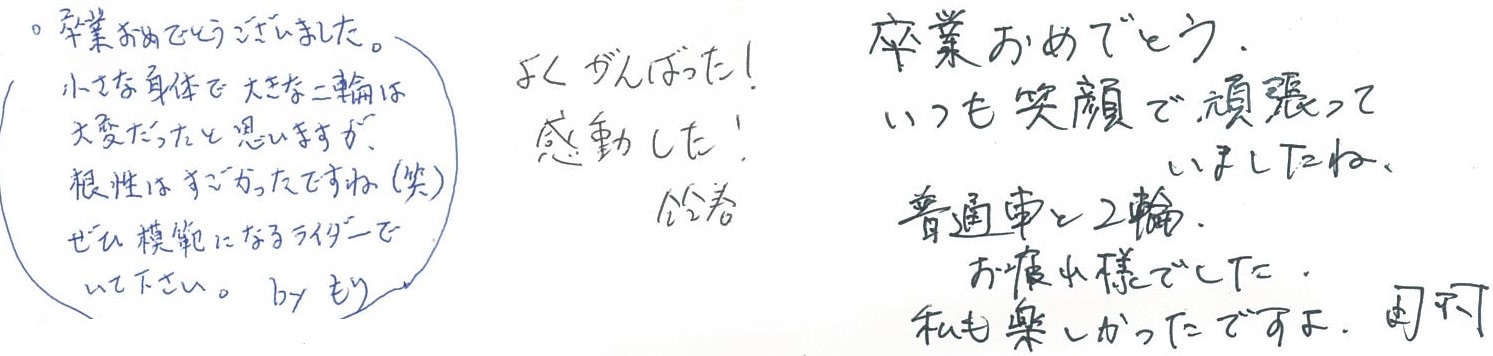 。卒業おめでとうございました。
小さな身体で大きな二輪は
大変だったと思いますが、
根性はすごかったですね(笑)
ぜひ模範になるライダーで
いて下さい。 by もり
よくがんばった!
感動した!
卒業おめでとう.
いつも笑顔で頑張って
いましたね、
普通車と2輪.
お疲れ様でした.
私も楽しかったですよ.